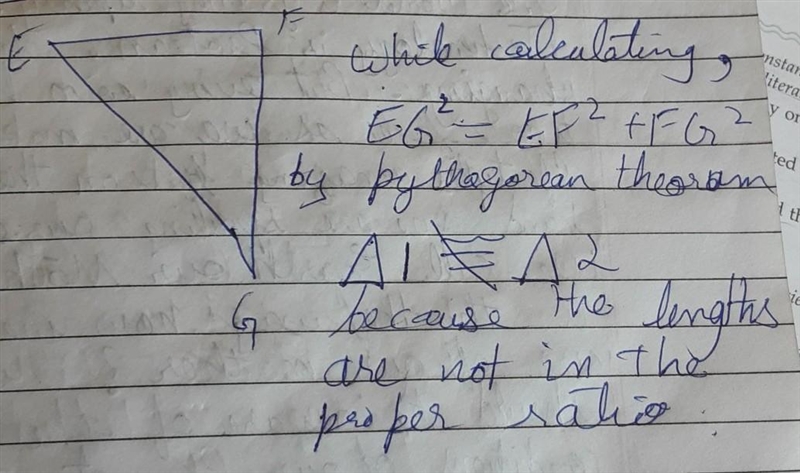 E F while calculating,
EG² = EF² + FG²
by pythagorean theoram
Δ1 ≢ Δ2
G because the lengths
are not in the
proper ratio.
nstan
litera
y or
ted